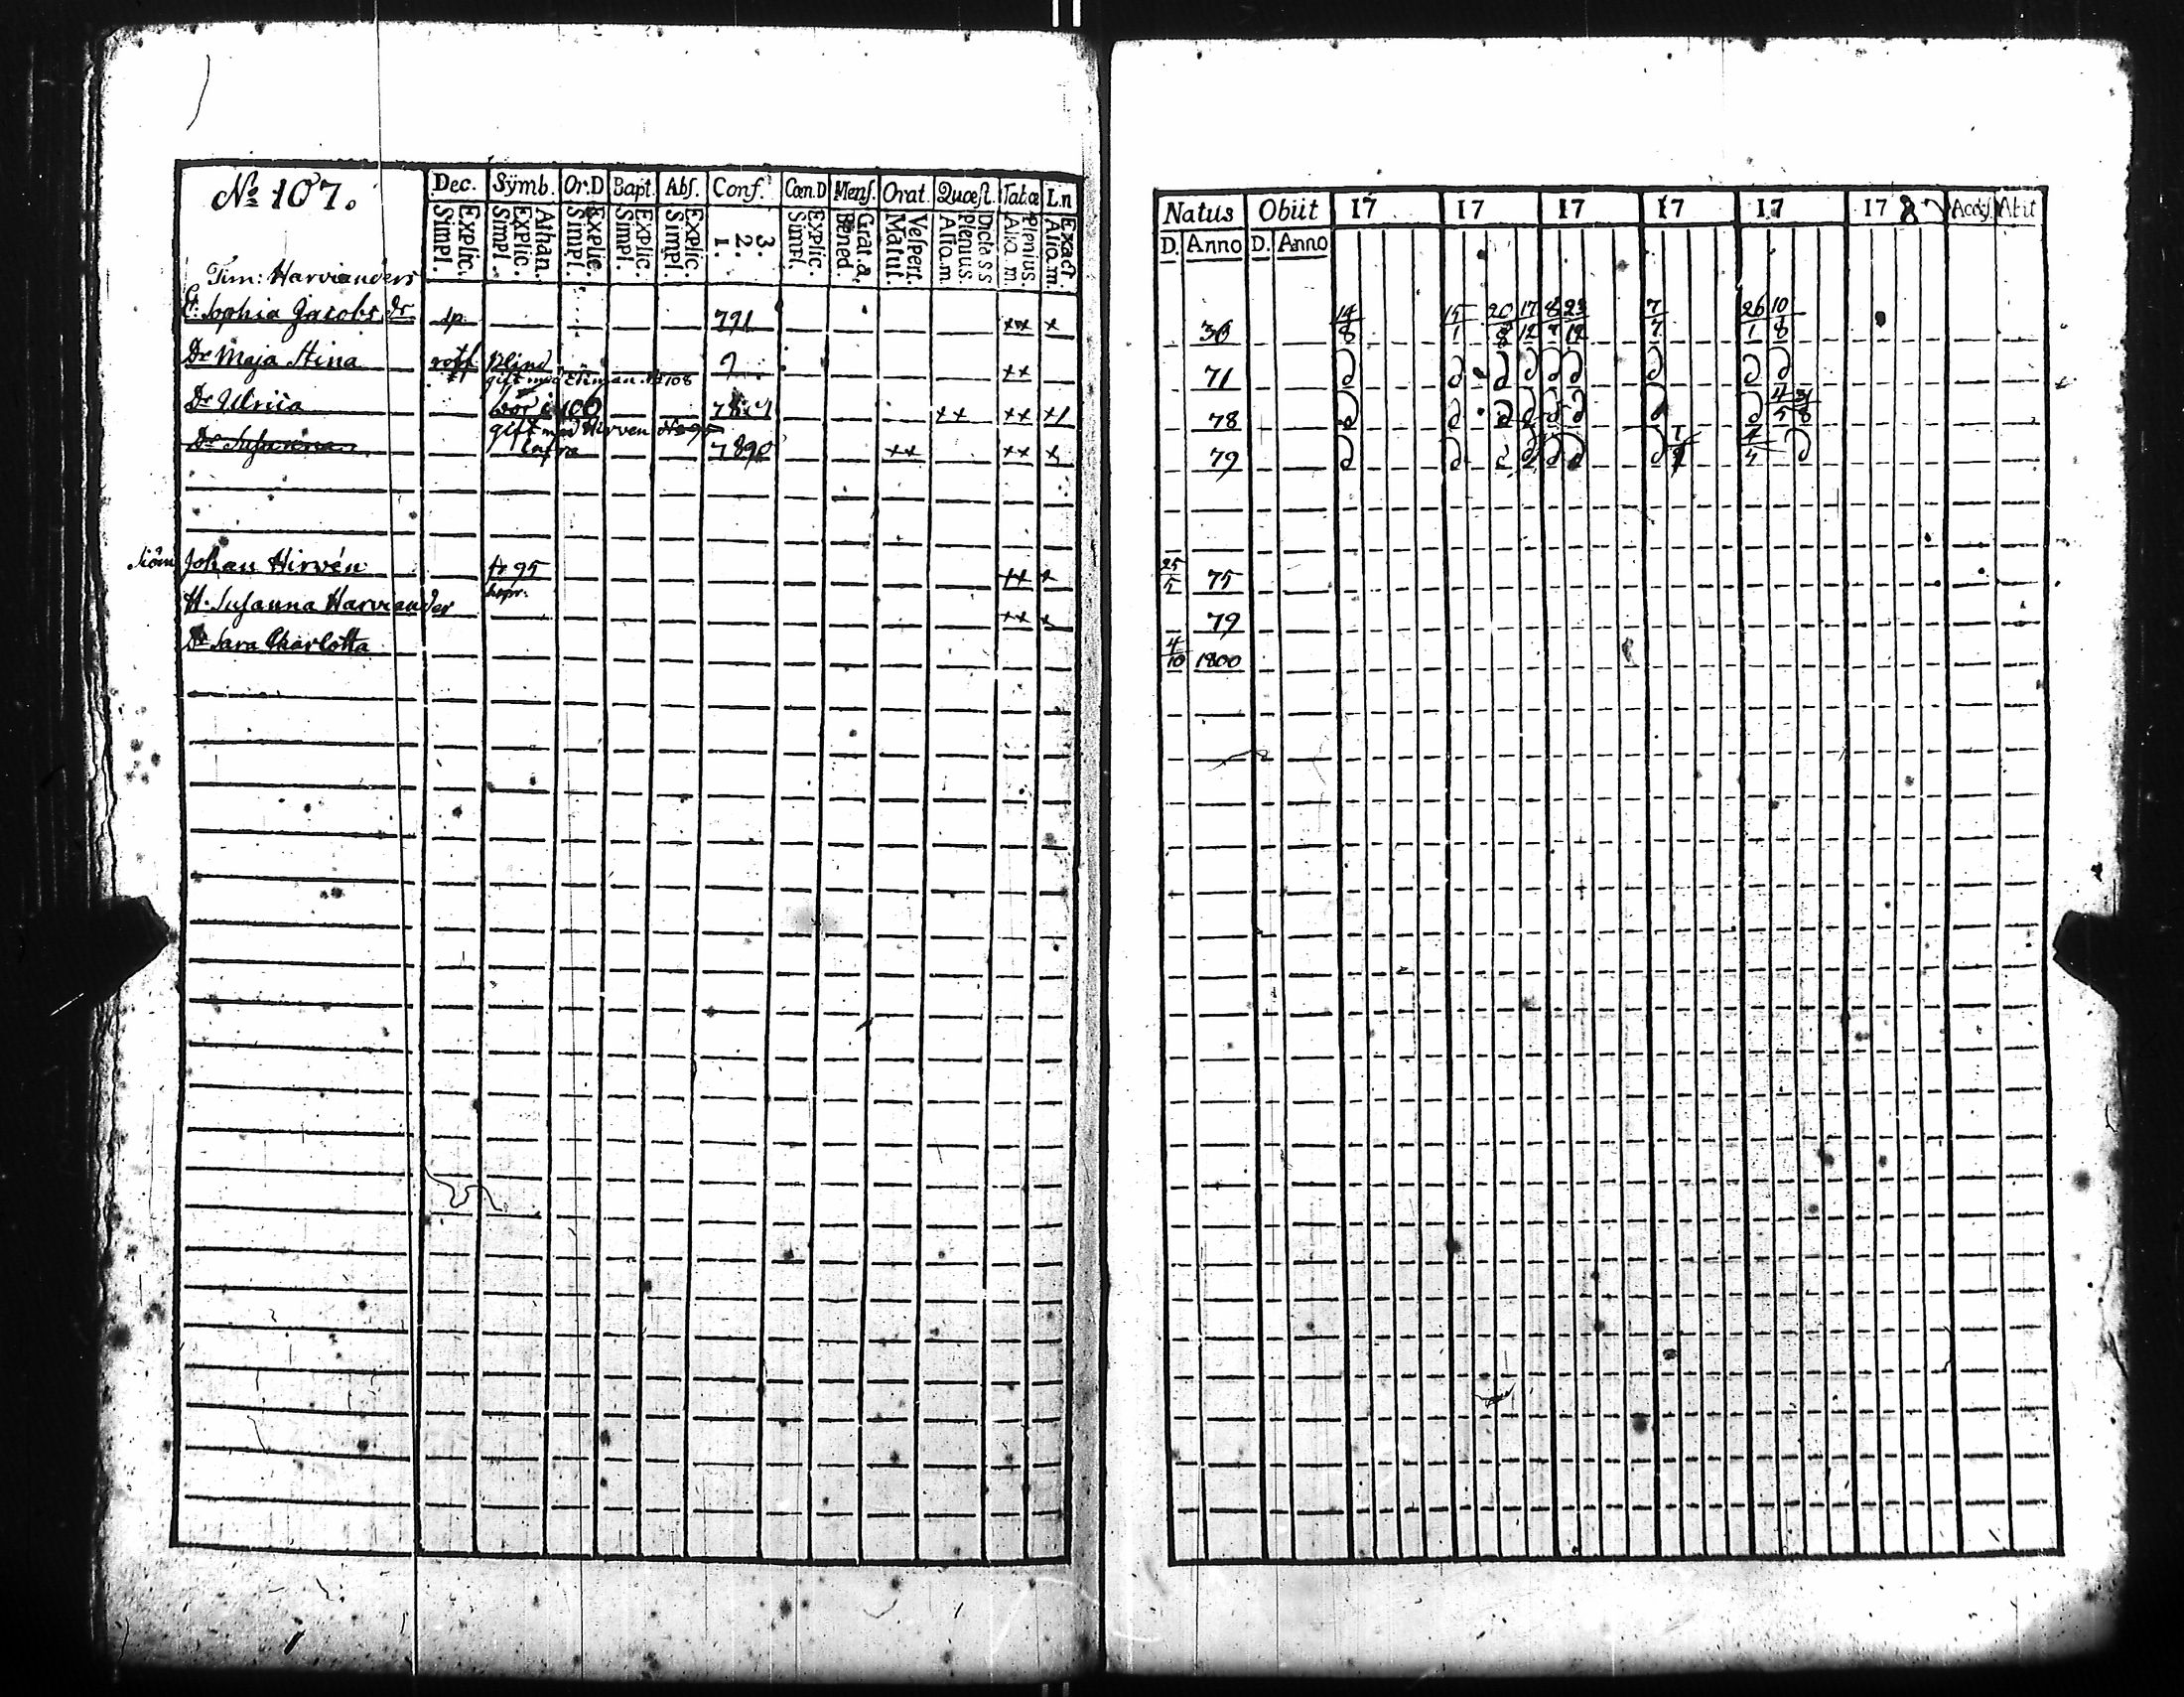 No 107.
Dec. Sÿmb. Or.D Bapt. Abs. Conf. Cœn.D Mens. Orat. Quæst. Tatæ L.n
Explic. Simpl. Athan. Explic. Simpl. Explic. Simpl. Explic. Simpl. Explic. Simpl. 3. 2. 1. Explic. Simpl. Grat.a. Bened. Vespert. Matut. Dicta S S Plenius. Alia.m Plenius. Alia m Exact. Alia.m.
Natus Obiit 17 17 17 17 17 17 8 Acces. Abit
D. Anno D. Anno
Tim: Harvianders
E. Sophia Jacobs dr sp 791 ×× × 36 14/8 15/1 20/8 17/12 8/7 23/12 7/7 26/1 10/8
Dr Maja Stina Blind ×× 71
gift med Etman No 108
Dr Ulrica bor i 106 ×× ×× ×1 78 4/5 31/8
gift med Hirven No 95
Dr Susanna infra 7890 ×× ×× × 79
Johan Hirvén fr 95 ×× × 25/5 75
H. Susanna Harviander supr. ×× × 79
Dr Sara Charlotta 4/10 1800